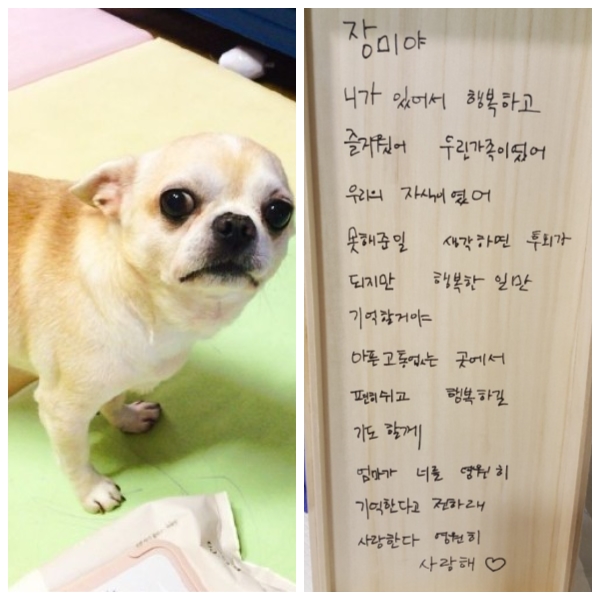 장미야
니가 있어서 행복하고
즐거웠어 우린가족이였어
우리의 자식이였어
못해준일 생각하면 후회가
되지만 행복한 일만
기억할거야
아픈고통없는 곳에서
편히쉬고 행복하길
기도 할게
엄마가 너를 영원히
기억한다고 전하래
사랑한다 영원히
사랑해 ♡